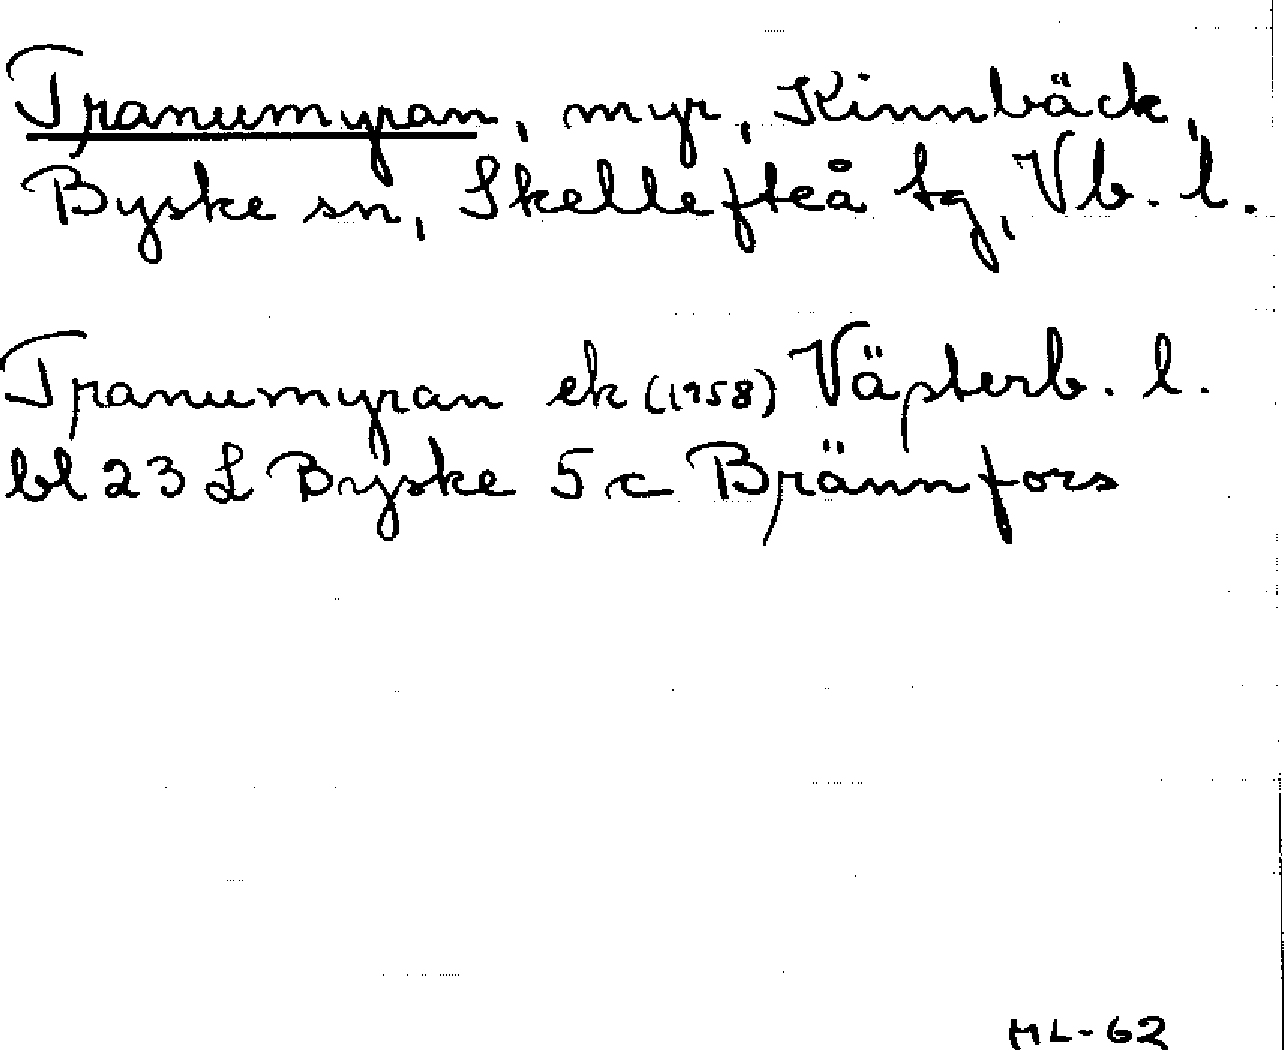 Tranumyran, myr, Kinnbäck,
Byske sn, Skellefteå tg, Vb. l.
Tranumyran ek (1958) Västerb. l.
bl 23 L Byske 5 c Brännfors
ML-62